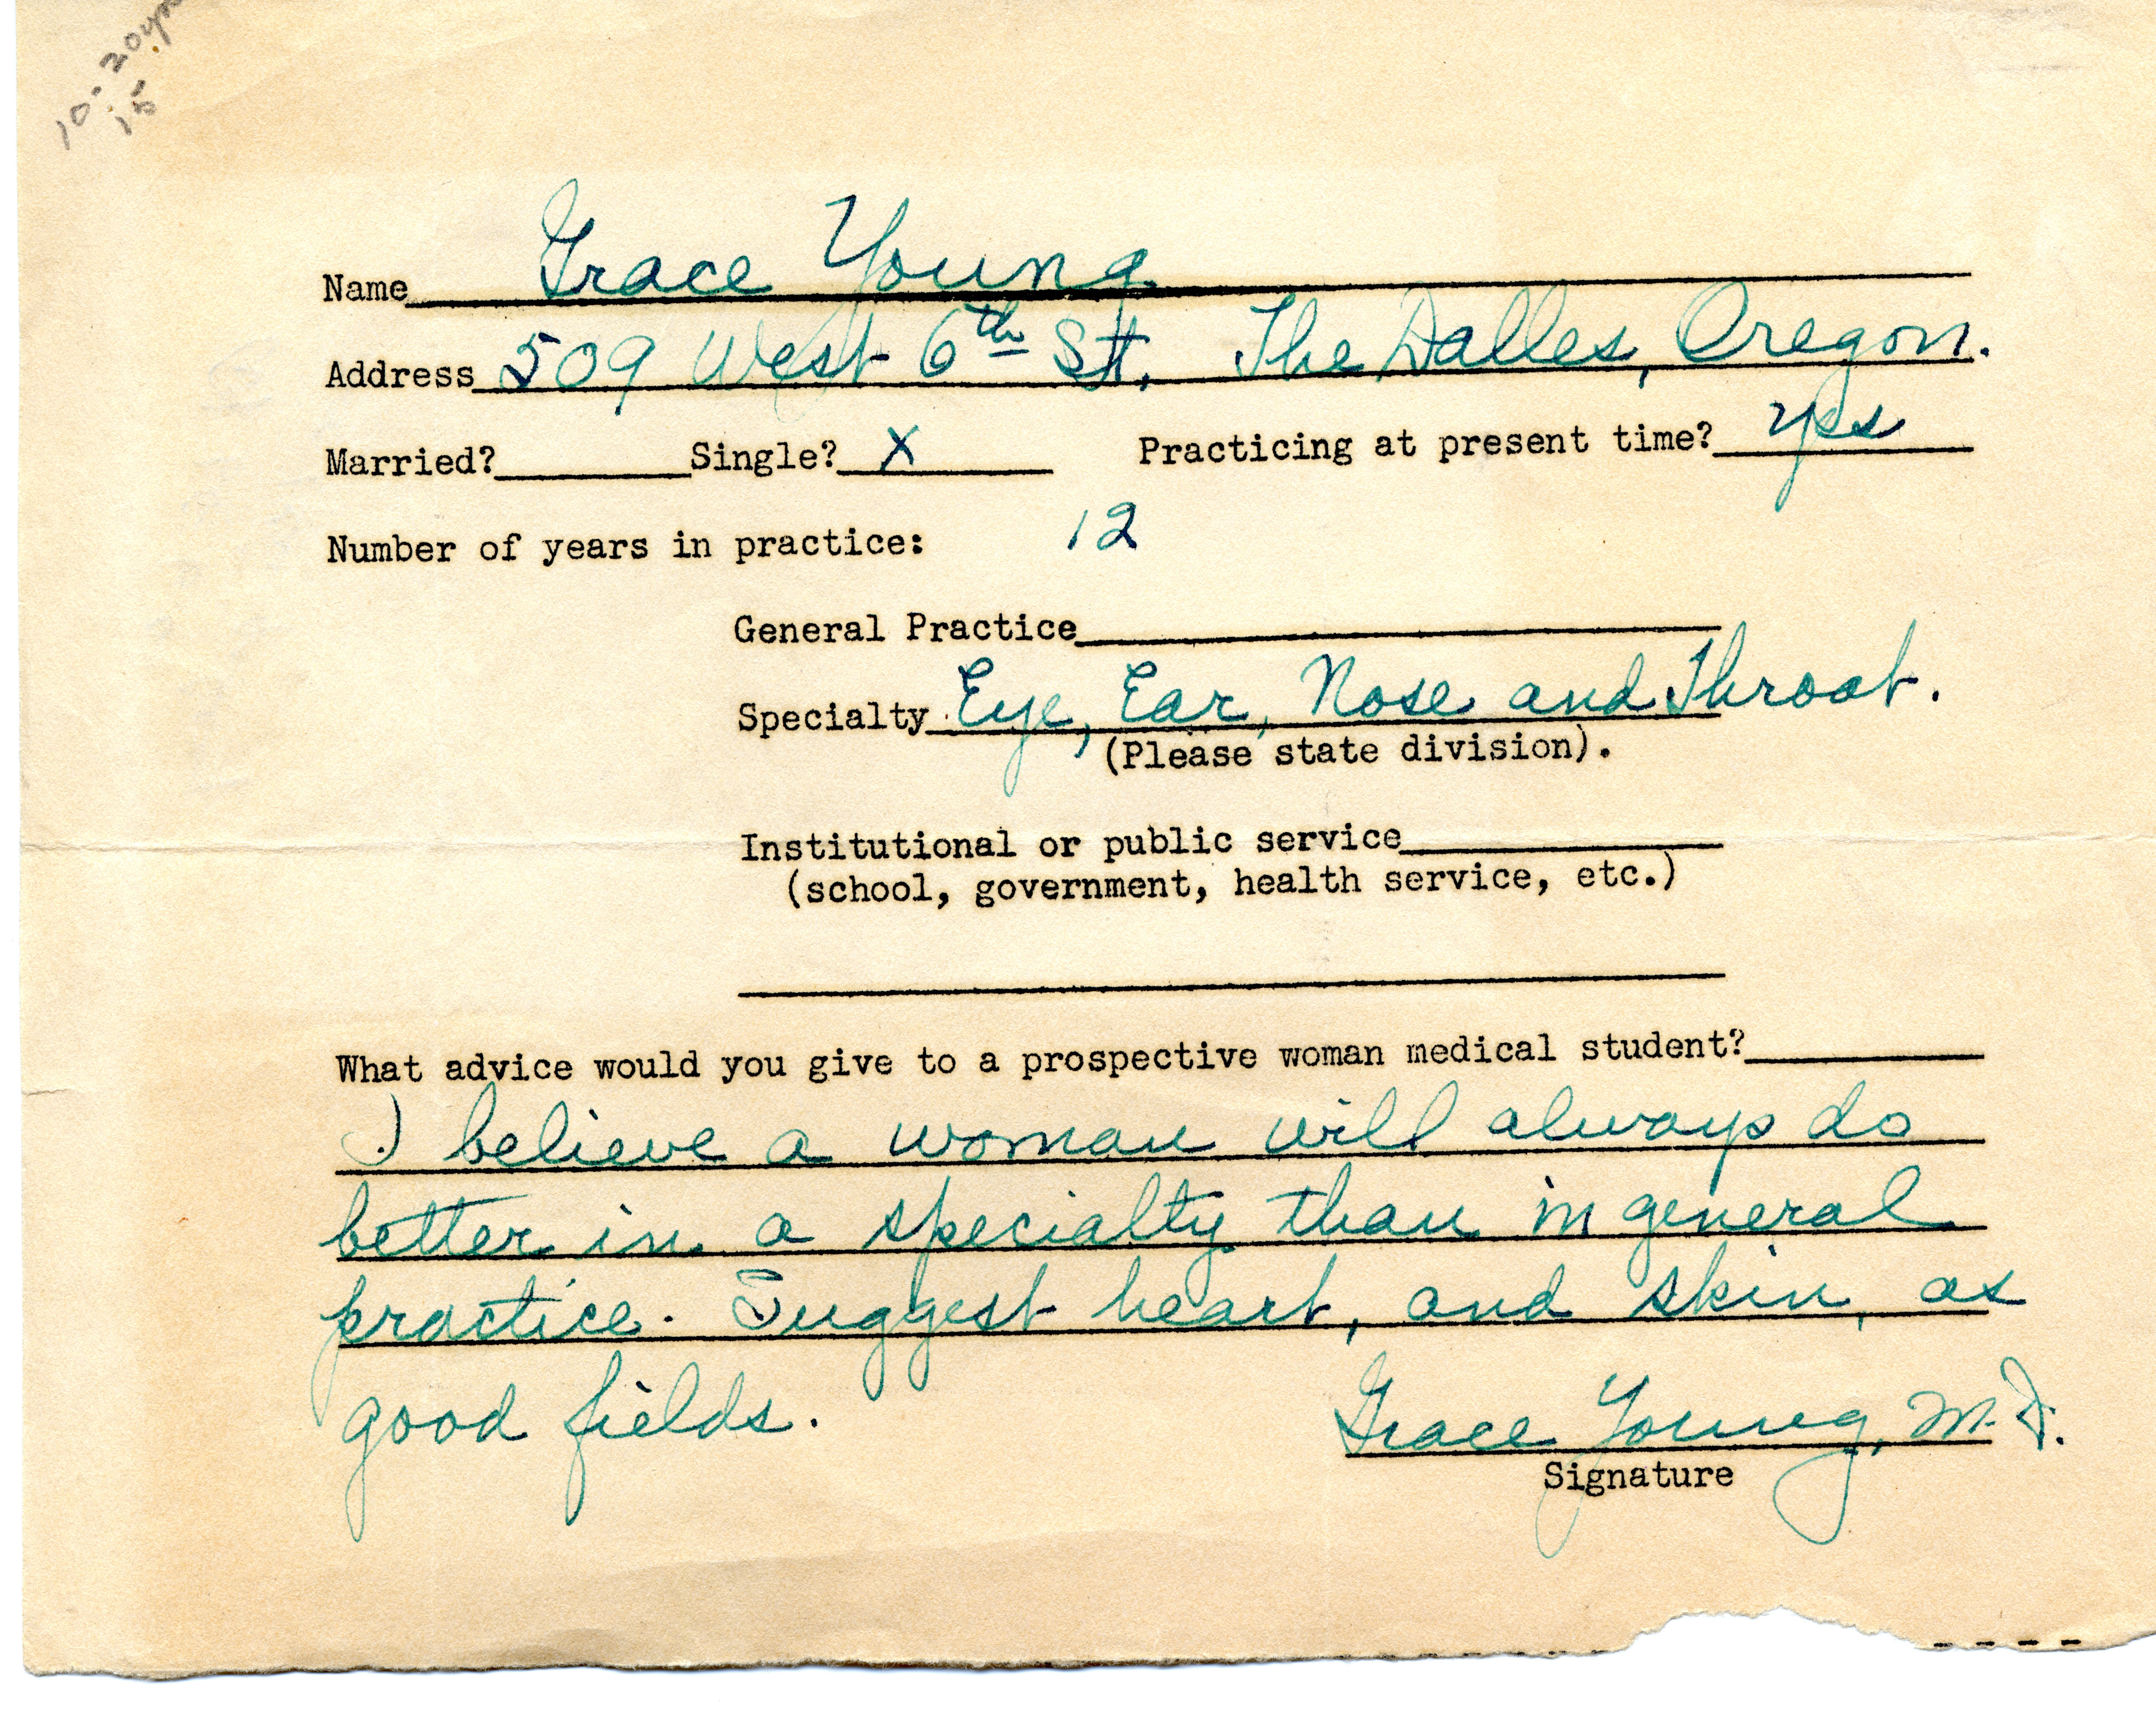 10-20yr
15
Name Grace Young
Address 509 West 6th St. The Dalles, Oregon.
Married? Single? X Practicing at present time? yes
Number of years in practice: 12
General Practice
Specialty Eye, Ear, Nose and Throat.
(Please state division).
Institutional or public service
(school, government, health service, etc.)
What advice would you give to a prospective woman medical student?
I believe a woman will always do
better in a specialty than in general
practice. Suggest heart, and skin, as
good fields.
Grace Young, M.D.
Signature